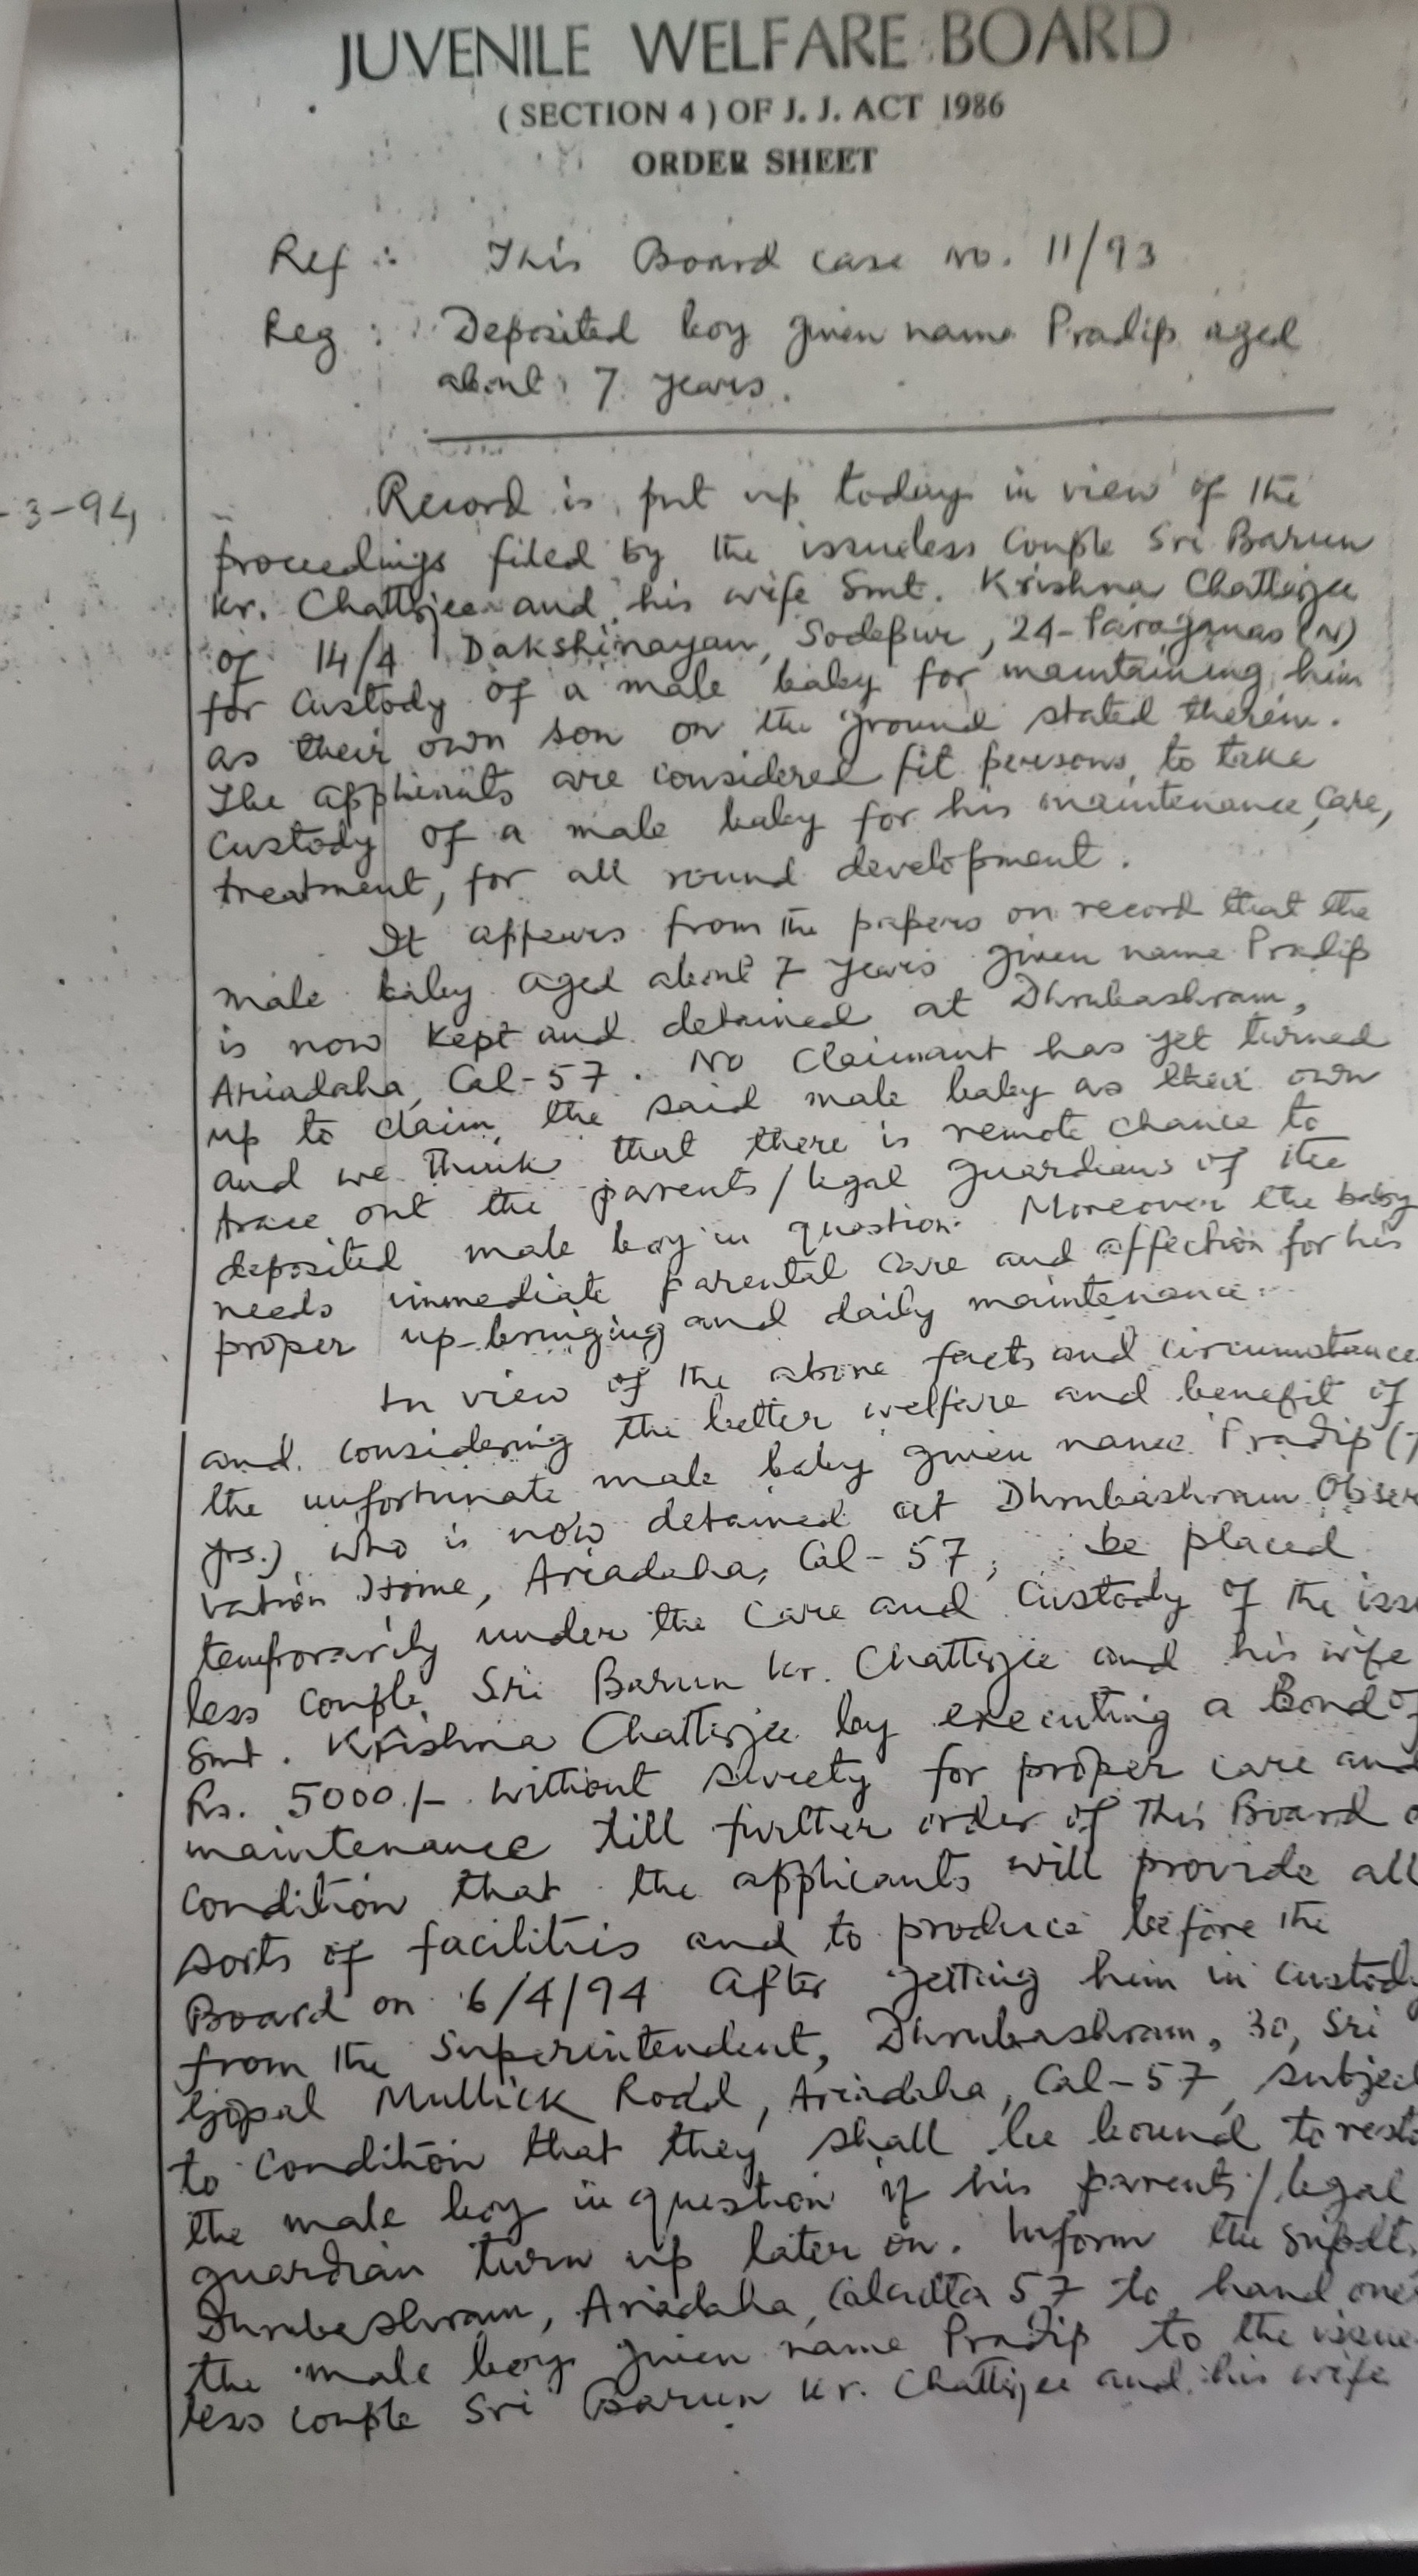 JUVENILE WELFARE BOARD
( SECTION 4 ) OF J. J. ACT 1986
ORDER SHEET
Ref : This Board case no. 11/93
Reg : Deposited boy given name Pradip aged
about 7 years.
-3-94
Record is put up today in view of the
proceedings filed by the issueless couple Sri Barun
kr. Chatterjee and his wife Smt. Krishna Chatterjee
of 14/4 Dakshinayan, Sodepur, 24-Paraganas (N)
for custody of a male baby for maintaining him
as their own son on the ground stated therein.
The applicants are considered fit persons to take
custody of a male baby for his maintenance, care,
treatment, for all round development.
It appears from the papers on record that the
male baby aged about 7 years given name Pradip
is now kept and detained at Dhrubashram,
Ariadaha, Cal-57. No claimant has yet turned
up to claim the said male baby as their own
and we think that there is remote chance to
trace out the parents/legal guardians of the
deposited male boy in question. Moreover the baby
needs immediate parental care and affection for his
proper up-bringing and daily maintenance.
In view of the above facts and circumstance
and considering the better welfare and benefit of
the unfortunate male baby given name Pradip (7
yrs.) who is now detained at Dhrubashram Obser
vation Home, Ariadaha, Cal-57, be placed
temporarily under the care and custody of the issu
less couple Sri Barun kr. Chatterjee and his wife
Smt. Krishna Chatterjee by executing a Bond of
Rs. 5000/- without surety for proper care and
maintenance till further order of this Board o
condition that the applicants will provide all
sorts of facilities and to produce before the
Board on 6/4/94 after getting him in custody
from the Superintendent, Dhrubashram, 30, Sri
Gopal Mullick Road, Ariadaha, Cal-57, subject
to condition that they shall be bound to resto
the male boy in question if his parents/legal
guardian turn up later on. Inform the Supdt.
Dhrubashram, Ariadaha, Calcutta 57 to hand over
the male boy given name Pradip to the issue
less couple Sri Barun kr. Chatterjee and his wife